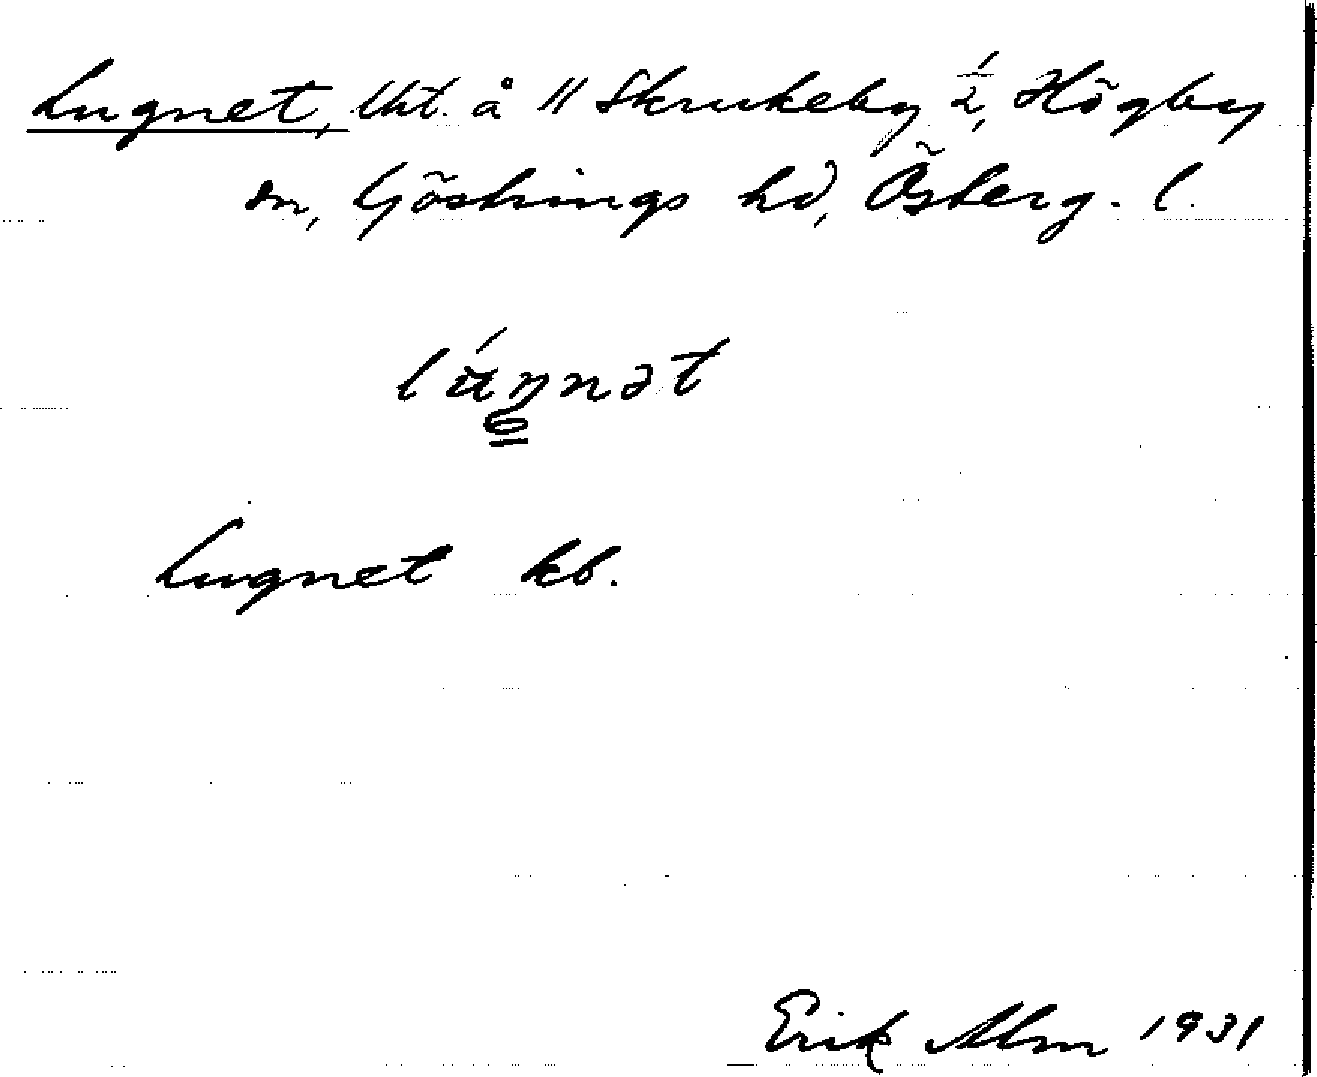 Lugnet, lht. å // Skrukeby ½, Högby
sn, Göstrings hd, Österg. l.
lúŋnət
Lugnet kb.
Erik Alm 1931